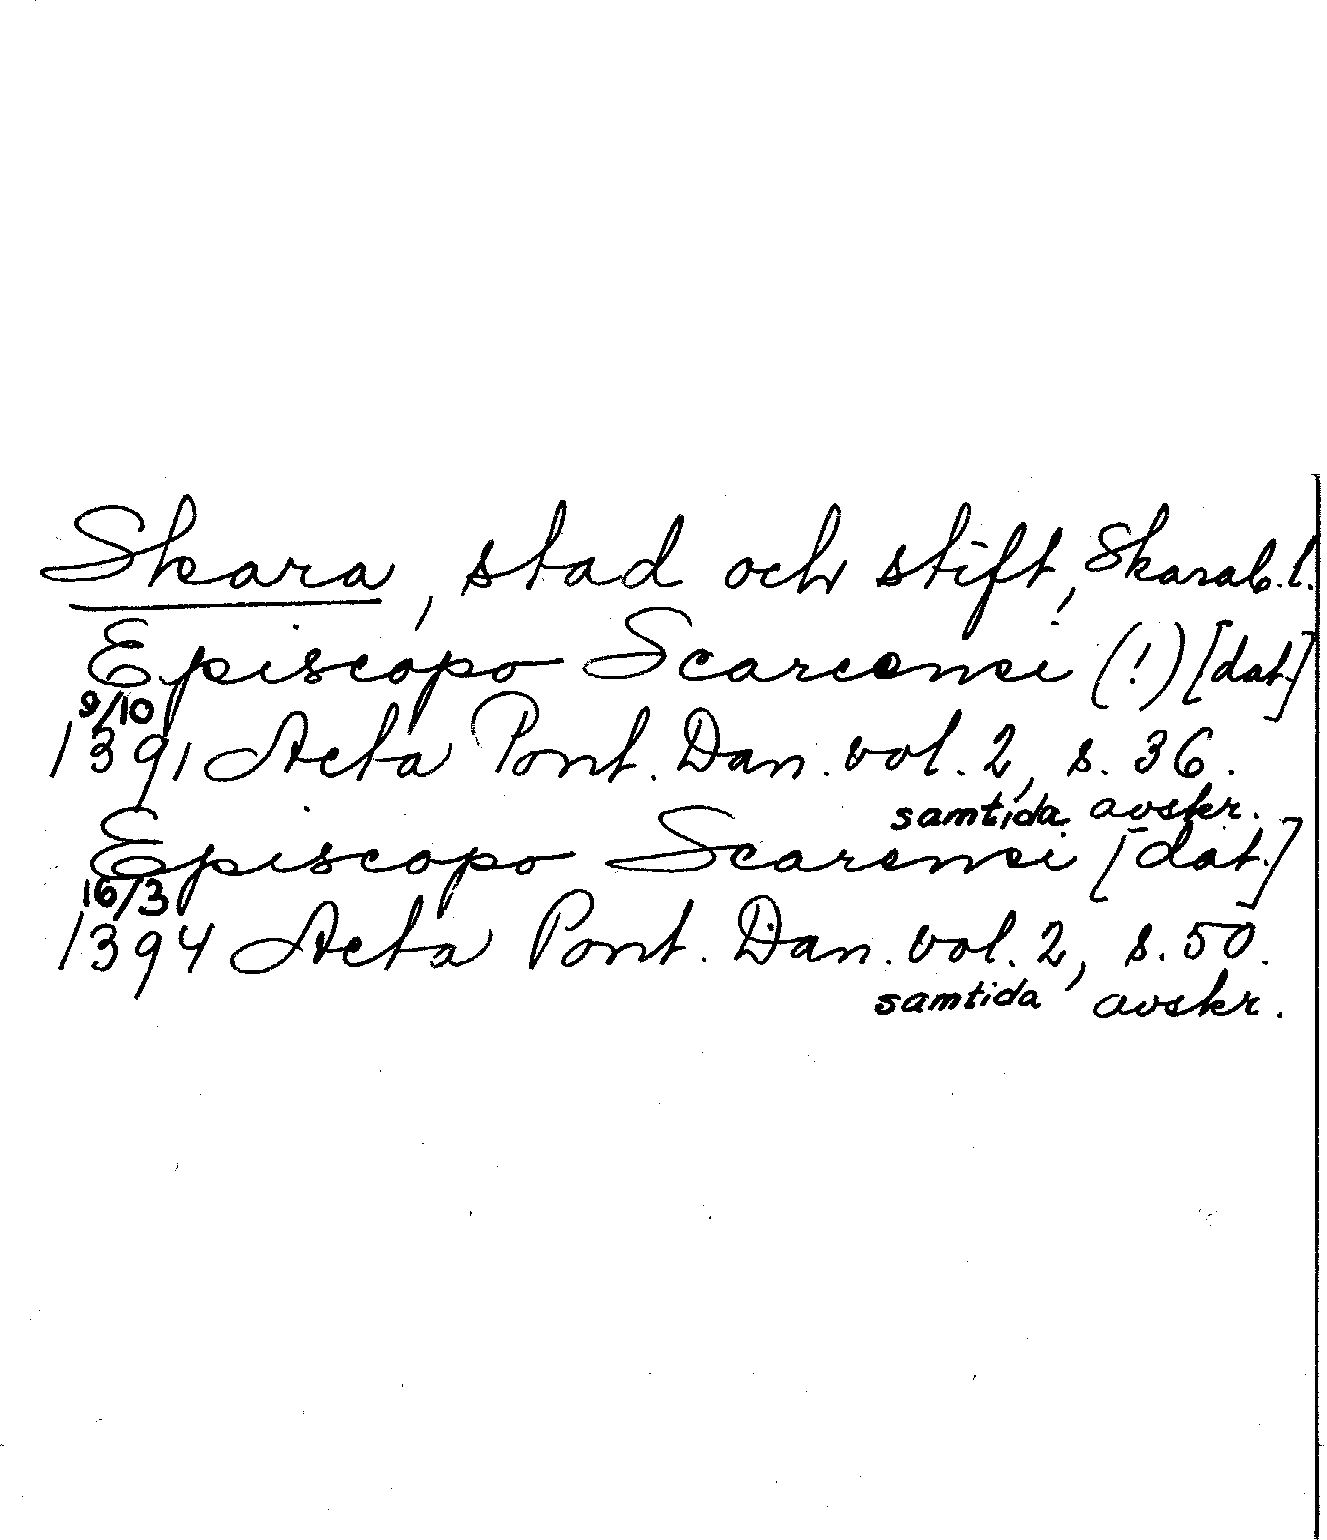 Skara, stad och stift, Skarab.l.
Episcopo Scarcensi (!) [dat.]
9/10
1391 Acta Pont. Dan. vol. 2, s. 36.
samtida avskr.
Episcopo Scarensi [dat.]
16/3
1394 Acta Pont. Dan. vol. 2, s. 50.
samtida avskr.